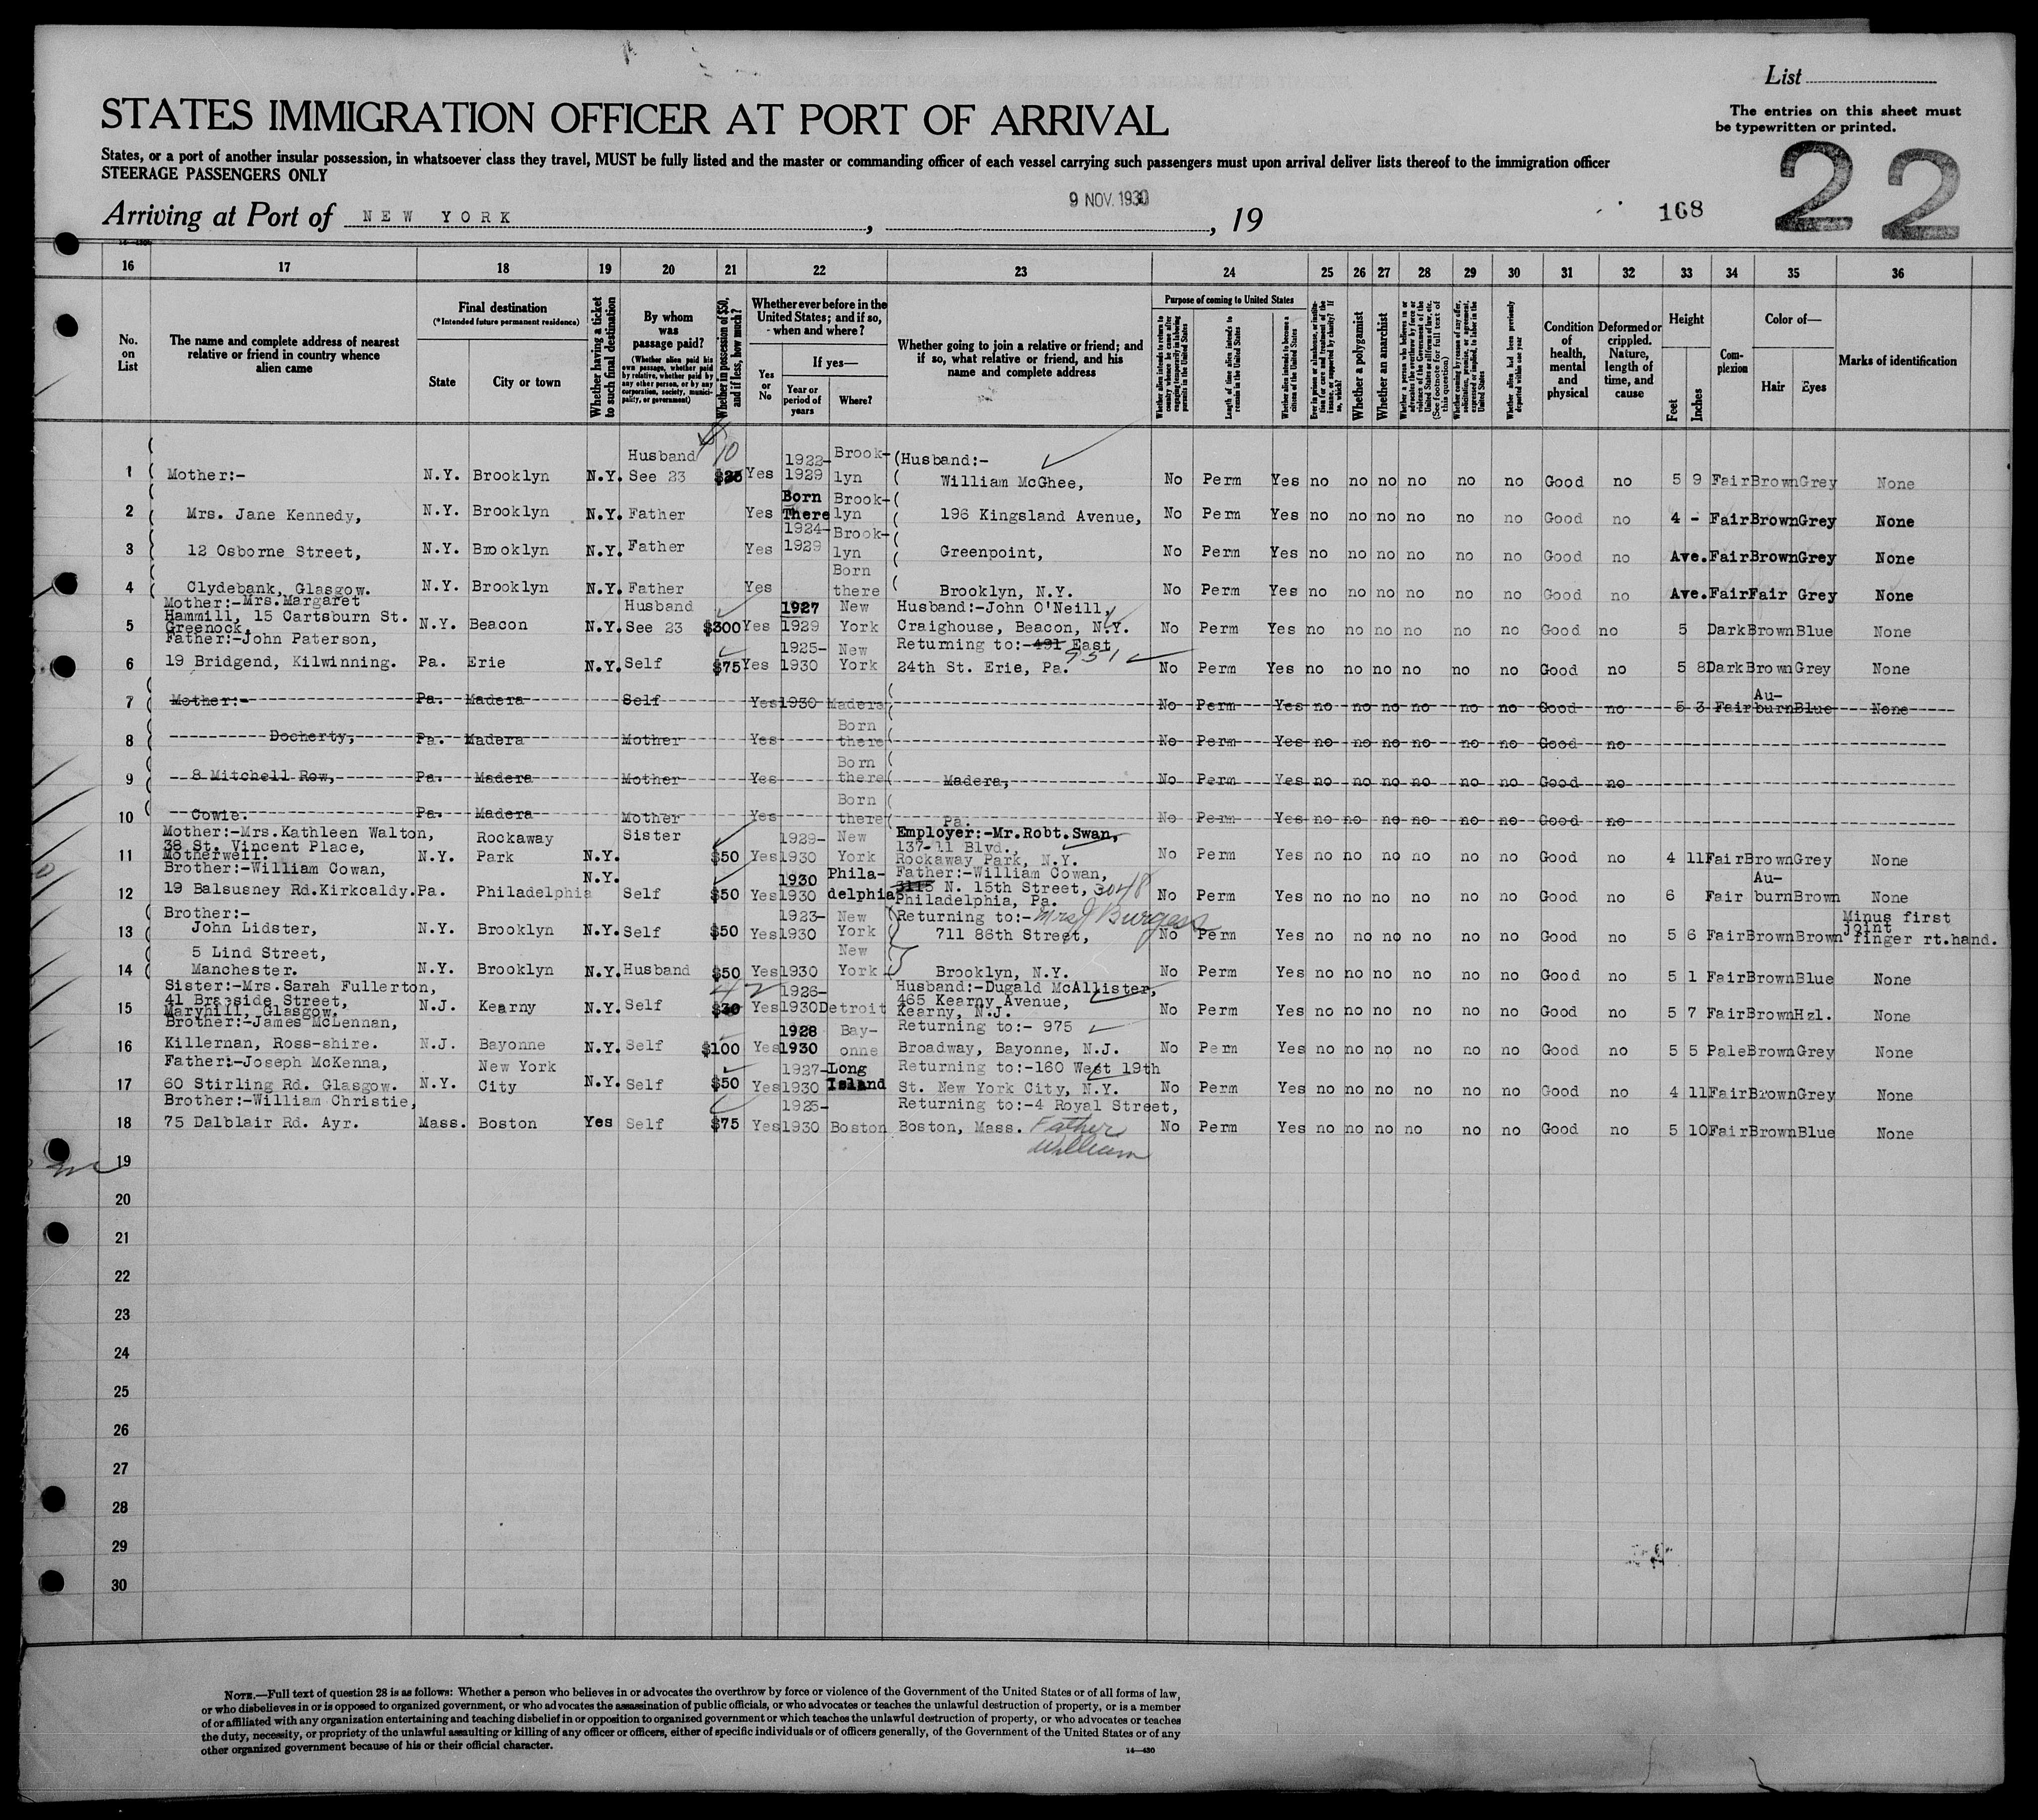 List
STATES IMMIGRATION OFFICER AT PORT OF ARRIVAL
The entries on this sheet must
be typewritten or printed.
States, or a port of another insular possession, in whatsoever class they travel, MUST be fully listed and the master or commanding officer of each vessel carrying such passengers must upon arrival deliver lists thereof to the immigration officer
STEERAGE PASSENGERS ONLY
22
Arriving at Port of NEW YORK, 9 NOV. 1930, 19
168
16 17 18 19 20 21 22 23 24 25 26 27 28 29 30 31 32 33 34 35 36
No. on List
The name and complete address of nearest relative or friend in country whence alien came
Final destination
(*Intended future permanent residence)
State
City or town
Whether having a ticket to such final destination
By whom was passage paid?
(Whether alien paid his own passage, whether paid by relative, whether paid by any other person, or by any corporation, society, municipality, or government)
Whether in possession of $50, and if less, how much?
Whether ever before in the United States; and if so, when and where?
Yes or No
If yes—
Year or period of years
Where?
Whether going to join a relative or friend; and if so, what relative or friend, and his name and complete address
Purpose of coming to United States
Length of time alien intends to remain in the United States
Whether alien intends to become a citizen of the United States
Whether a polygamist
Whether an anarchist
Condition of health, mental and physical
Deformed or crippled. Nature, length of time, and cause
Height
Feet
Inches
Complexion
Color of—
Hair
Eyes
Marks of identification
1 Mother:- N.Y. Brooklyn N.Y. Husband See 23 $25 10 Yes 1922-1929 Brooklyn Husband:- William McGhee, No Perm Yes no no no no no no Good no 5 9 Fair Brown Grey None
2 Mrs. Jane Kennedy, N.Y. Brooklyn N.Y. Father Yes Born There Brooklyn 196 Kingsland Avenue, No Perm Yes no no no no no no Good no 4 - Fair Brown Grey None
3 12 Osborne Street, N.Y. Brooklyn N.Y. Father Yes 1924-1929 Brooklyn Greenpoint, No Perm Yes no no no no no no Good no Ave. Fair Brown Grey None
4 Clydebank, Glasgow. N.Y. Brooklyn N.Y. Father Yes Born there Brooklyn, N.Y. No Perm Yes no no no no no no Good no Ave. Fair Fair Grey None
5 Mother:-Mrs.Margaret Hammill, 15 Cartsburn St. Greenock. N.Y. Beacon N.Y. Husband See 23 $300 Yes 1927 1929 New York Husband:-John O'Neill, Craighouse, Beacon, N.Y. No Perm Yes no no no no no no Good no 5 Dark Brown Blue None
6 Father:-John Paterson, 19 Bridgend, Kilwinning. Pa. Erie N.Y. Self $75 Yes 1925-1930 New York Returning to:-491 East 951 24th St. Erie, Pa. No Perm Yes no no no no no no Good no 5 8 Dark Brown Grey None
7 Mother:- Pa. Madera Self Yes 1930 Madera No Perm Yes no no no no no no Good no 5 3 Fair Auburn Blue None
8 Docherty, Pa. Madera Mother Yes Born there No Perm Yes no no no no no no Good no
9 8 Mitchell Row, Pa. Madera Mother Yes Born there Madera, No Perm Yes no no no no no no Good no
10 Cowie. Pa. Madera Mother Yes Born there Pa. No Perm Yes no no no no no no Good no
11 Mother:-Mrs.Kathleen Walton, 38 St. Vincent Place, Motherwell. N.Y. Rockaway Park N.Y. Sister $50 Yes 1929-1930 New York Employer:-Mr.Robt.Swan, 137-11 Blvd., Rockaway Park, N.Y. No Perm Yes no no no no no no Good no 4 11 Fair Brown Grey None
12 Brother:-William Cowan, 19 Balsusney Rd.Kirkcaldy. Pa. Philadelphia N.Y. Self $50 Yes 1930 1930 Philadelphia Father:-William Cowan, 3115 N. 15th Street, 3048 Philadelphia, Pa. No Perm Yes no no no no no no Good no 6 Fair Auburn Brown None
13 Brother:- John Lidster, N.Y. Brooklyn N.Y. Self $50 Yes 1923-1930 New York Returning to:- Mrs J Burgess 711 86th Street, No Perm Yes no no no no no no Good no 5 6 Fair Brown Brown Minus first joint finger rt.hand.
14 5 Lind Street, Manchester. N.Y. Brooklyn N.Y. Husband $50 Yes 1930 New York Brooklyn, N.Y. No Perm Yes no no no no no no Good no 5 1 Fair Brown Blue None
15 Sister:-Mrs.Sarah Fullerton, 41 Braeside Street, Maryhill, Glasgow. N.J. Kearny N.Y. Self $30 42 Yes 1926-1930 Detroit Husband:-Dugald McAllister, 465 Kearny Avenue, Kearny, N.J. No Perm Yes no no no no no no Good no 5 7 Fair Brown Hzl. None
16 Brother:-James McLennan, Killernan, Ross-shire. N.J. Bayonne N.Y. Self $100 Yes 1928 1930 Bayonne Returning to:- 975 Broadway, Bayonne, N.J. No Perm Yes no no no no no no Good no 5 5 Pale Brown Grey None
17 Father:-Joseph McKenna, 60 Stirling Rd. Glasgow. N.Y. New York City N.Y. Self $50 Yes 1927-1930 Long Island Returning to:-160 West 19th St. New York City, N.Y. No Perm Yes no no no no no no Good no 4 11 Fair Brown Grey None
18 Brother:-William Christie, 75 Dalblair Rd. Ayr. Mass. Boston Yes Self $75 Yes 1925-1930 Boston Returning to:-4 Royal Street, Boston, Mass. Father William No Perm Yes no no no no no no Good no 5 10 Fair Brown Blue None
19
20
21
22
23
24
25
26
27
28
29
30
NOTE.—Full text of question 28 is as follows: Whether a person who believes in or advocates the overthrow by force or violence of the Government of the United States or of all forms of law,
or who disbelieves in or is opposed to organized government, or who advocates the assassination of public officials, or who advocates or teaches the unlawful destruction of property, or is a member
of or affiliated with any organization entertaining and teaching disbelief in or opposition to organized government or which teaches the unlawful destruction of property, or who advocates or teaches
the duty, necessity, or propriety of the unlawful assaulting or killing of any officer or officers, either of specific individuals or of officers generally, of the Government of the United States or of any
other organized government because of his or their official character.
14—430